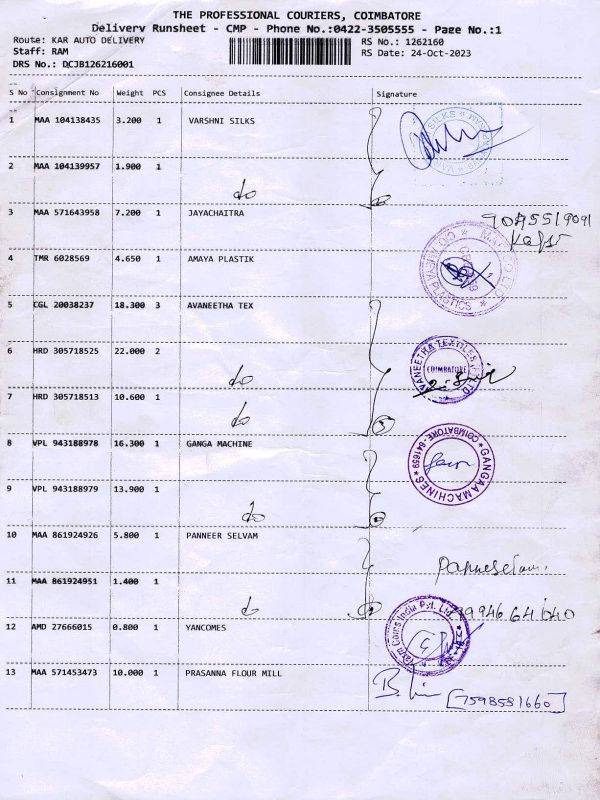 THE PROFESSIONAL COURIERS, COIMBATORE
Delivery Runsheet - CMP - Phone No.:0422-3505555 - Page No.:1
Route: KAR AUTO DELIVERY RS No.: 1262160
Staff: RAM RS Date: 24-Oct-2023
DRS No.: DCJB126216001
S No Consignment No Weight PCS Consignee Details Signature
1 MAA 104138435 3.200 1 VARSHNI SILKS
SILKS
2 MAA 104139957 1.900 1
do
3 MAA 571643958 7.200 1 JAYACHAITRA
4 TMR 6028569 4.650 1 AMAYA PLASTIK
PLASTICS
5 CGL 20038237 18.300 3 AVANEETHA TEX
6 HRD 305718525 22.000 2
do
AVANEETHA TEXTILES
COIMBATORE
7 HRD 305718513 10.600 1
do
8 VPL 943188978 16.300 1 GANGA MACHINE
GANGAA MACHINES
COIMBATORE - 641659
9 VPL 943188979 13.900 1
do
10 MAA 861924926 5.800 1 PANNEER SELVAM
11 MAA 861924951 1.400 1
do
9994664040
12 AMD 27666015 0.800 1 YANCOMES
India Pvt. Ltd.
13 MAA 571453473 10.000 1 PRASANNA FLOUR MILL
[7598581660]